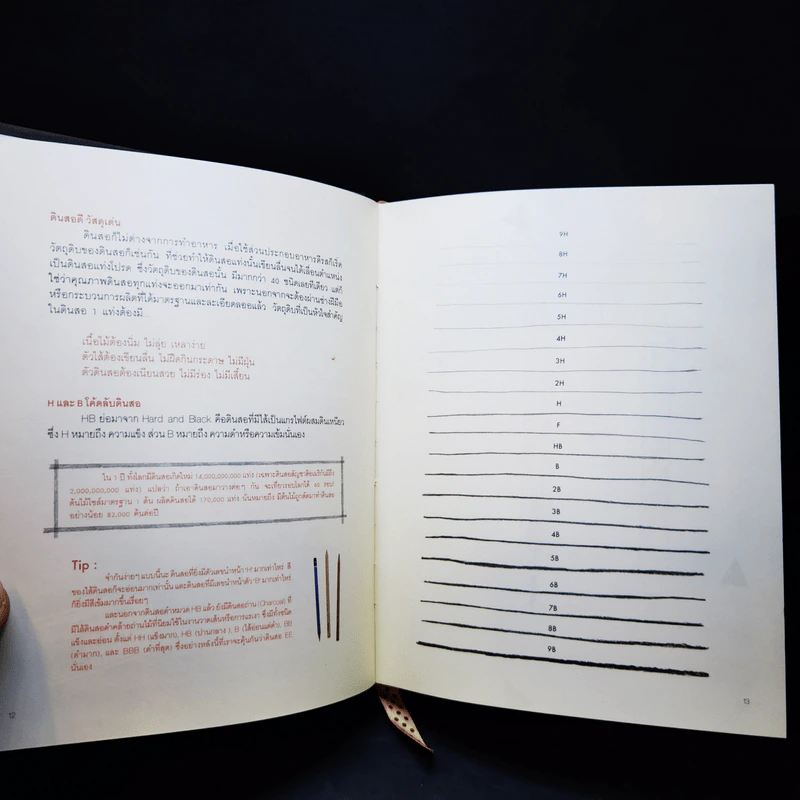 ดินสอดี วัสดุเด่น
ดินสอก็ไม่ต่างจากการทำอาหาร เมื่อใช้ส่วนประกอบอาหารดีรสก็เริ่ด
วัตถุดิบของดินสอก็เช่นกัน ที่ช่วยทำให้ดินสอแท่งนั้นเขียนลื่นจนได้เลื่อนตำแหน่ง
เป็นดินสอแท่งโปรด ซึ่งวัตถุดิบของดินสอนั้น มีมากกว่า 40 ชนิดเลยทีเดียว แต่ก็
ใช่ว่าคุณภาพดินสอทุกแท่งจะออกมาเท่ากัน เพราะนอกจากจะต้องผ่านช่างฝีมือ
หรือกระบวนการผลิตที่ได้มาตรฐานและละเอียดลออแล้ว วัตถุดิบที่เป็นหัวใจสำคัญ
ในดินสอ 1 แท่งต้องมี...
เนื้อไม้ต้องนิ่ม ไม่ลุ่ย เหลาง่าย
ตัวไส้ต้องเขียนลื่น ไม่ฝืดกินกระดาษ ไม่มีฝุ่น
ตัวดินสอต้องเนียนสวย ไม่มีร่อง ไม่มีเสี้ยน
H และ B โค้ดลับดินสอ
HB ย่อมาจาก Hard and Black คือดินสอที่มีไส้เป็นแกรไฟต์ผสมดินเหนียว
ซึ่ง H หมายถึง ความแข็ง ส่วน B หมายถึง ความดำหรือความเข้มนั่นเอง
ใน 1 ปี ทั้งโลกมีดินสอเกิดใหม่ 14,000,000,000 แท่ง (เฉพาะดินสอสัญชาติอเมริกันมีถึง
2,000,000,000 แท่ง) แปลว่า ถ้าเอาดินสอมาวางต่อๆ กัน จะเที่ยวรอบโลกได้ 60 รอบ!
ต้นไม้ไซส์มาตรฐาน 1 ต้น ผลิตดินสอได้ 170,000 แท่ง นั่นหมายถึง มีต้นไม้ถูกตัดมาทำดินสอ
อย่างน้อย 82,000 ต้นต่อปี
Tip :
จำกันง่ายๆ แบบนี้นะ ดินสอที่ยิ่งมีตัวเลขนำหน้า 'H' มากเท่าไหร่ สี
ของไส้ดินสอก็จะอ่อนมากเท่านั้น และดินสอที่มีเลขนำหน้าตัว 'B' มากเท่าไหร่
ก็ยิ่งมีสีเข้มมากขึ้นเรื่อยๆ
และนอกจากดินสอดำหมวด HB แล้ว ยังมีดินสอถ่าน (Charcoal) ที่
มีไส้ดินสอดำคล้ายถ่านไม้ที่นิยมใช้ในงานวาดเส้นหรือการแรเงา ซึ่งมีทั้งชนิด
แข็งและอ่อน ตั้งแต่ HH (แข็งมาก), HB (ปานกลาง ), B (ไส้อ่อนแต่ดำ), BB
(ดำมาก), และ BBB (ดำที่สุด) ซึ่งอย่างหลังนี้ที่เราจะคุ้นกันว่าดินสอ EE
นั่นเอง
12
9H
8H
7H
6H
5H
4H
3H
2H
H
F
HB
B
2B
3B
4B
5B
6B
7B
8B
9B
13